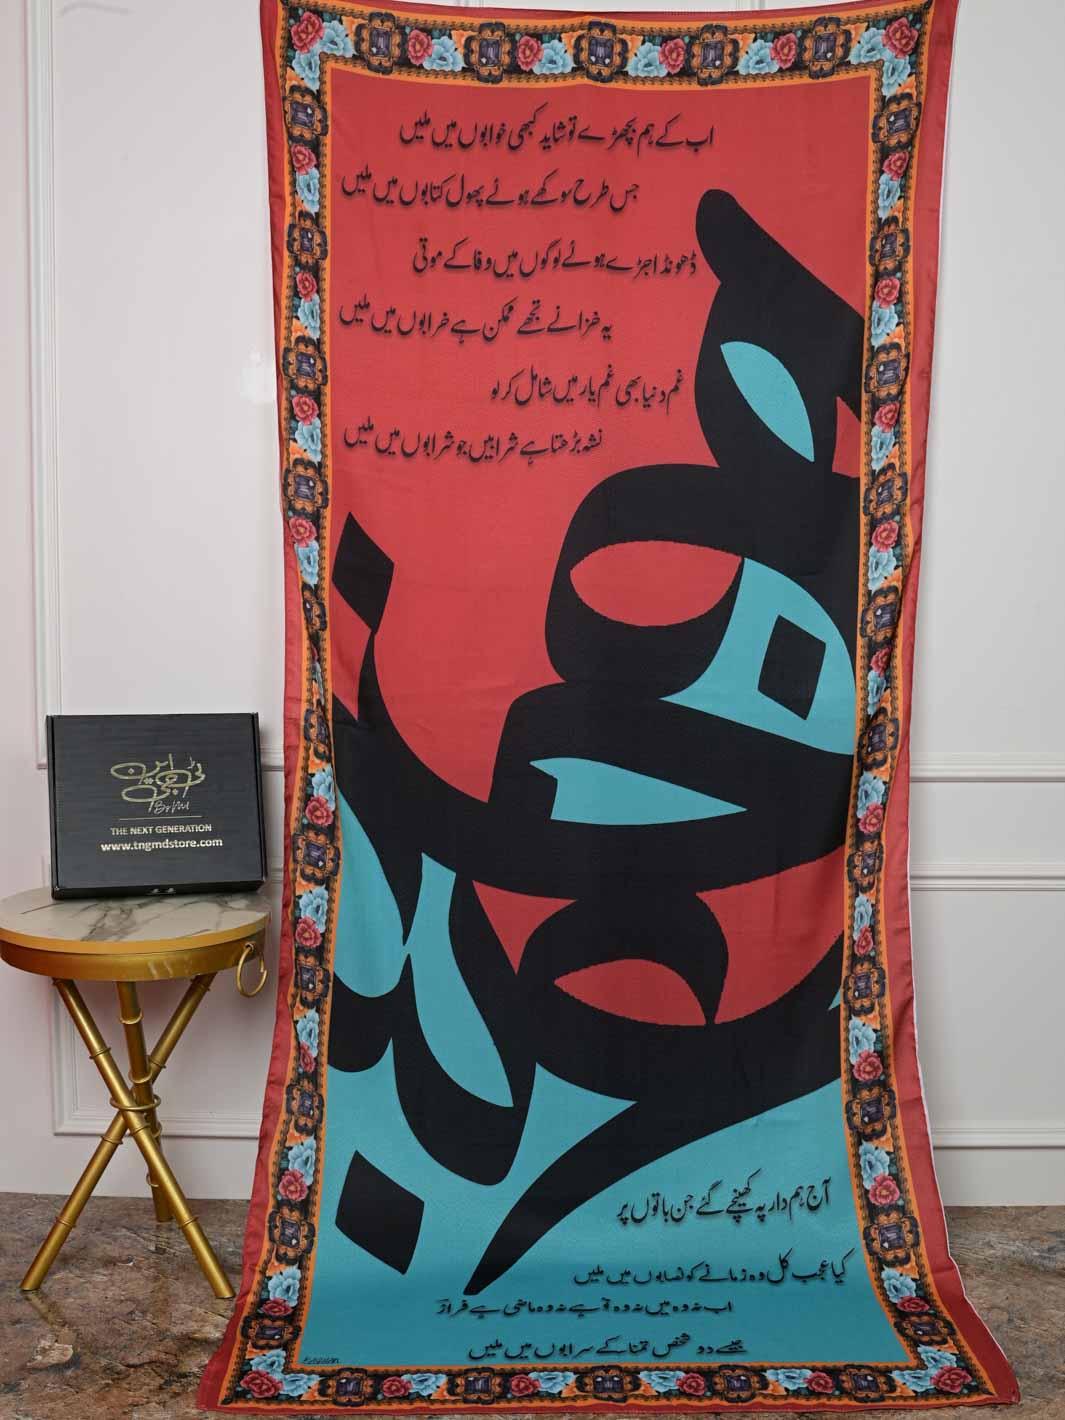 اب کے ہم بچھڑے تو شاید کبھی خوابوں میں ملیں
جس طرح سوکھے ہوئے پھول کتابوں میں ملیں
ڈھونڈ اجڑے ہوئے لوگوں میں وفا کے موتی
یہ خزانے تجھے ممکن ہے خرابوں میں ملیں
غم دنیا بھی غم یار میں شامل کر لو
نشہ بڑھتا ہے شرابیں جو شرابوں میں ملیں
آج ہم دار پہ کھینچے گئے جن باتوں پر
کیا عجب کل وہ زمانے کو نصابوں میں ملیں
اب نہ وہ میں نہ وہ تو ہے نہ وہ ماضی ہے فراز
جیسے دو شخص تمنا کے سرابوں میں ملیں
ٹی این جی
By Md
THE NEXT GENERATION
www.tngmdstore.com